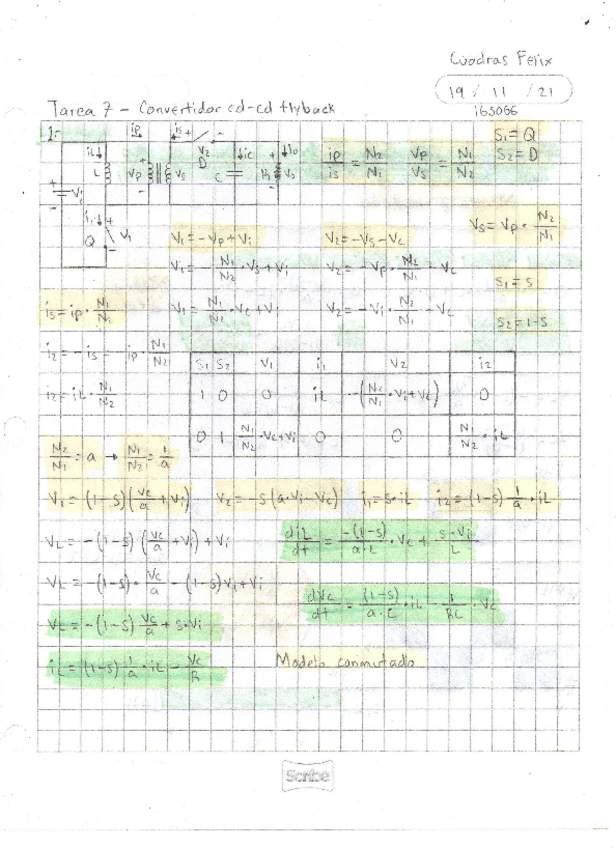 Cuadras Felix
19 / 11 / 21
Tarea 7 - Convertidor cd-cd flyback
165066
1=
ip
is +
V2
D
iL
L
Vp
Vs
ic
C
R
io
Vo
Vi
i1
Q
V1
ip/is = N2/N1
Vp/Vs = N1/N2
S1 = Q
S2 = D
Vs = Vp · N2/N1
V1 = -Vp + Vi
V2 = -Vs - Vc
V1 = -N1/N2 · Vs + Vi
V2 = -Vp · N2/N1 - Vc
S1 = S
is = ip · N1/N2
V1 = N1/N2 · Vc + Vi
V2 = -Vi · N2/N1 - Vc
S2 = 1-S
i2 = -is = -ip · N1/N2
i2 = iL · N1/N2
S1 S2 V1 i1 V2 i2
1 0 0 iL -(N2/N1 · Vi + Vc) 0
0 1 N1/N2 · Vc + Vi 0 0 N1/N2 · iL
N2/N1 = a → N1/N2 = 1/a
V1 = (1-S)(Vc/a + Vi)
V2 = -S(a·Vi - Vc)
i1 = S·iL
i2 = (1-S) 1/a · iL
VL = -(1-S)(Vc/a + Vi) + Vi
diL/dt = -(1-S)/a·L · Vc + S·Vi/L
VL = -(1-S)· Vc/a - (1-S)Vi + Vi
dVc/dt = (1-S)/a·C · iL - 1/RC · Vc
VL = -(1-S) Vc/a + S·Vi
ic = (1-S) 1/a · iL - Vc/R
Modelo conmutado
Scribe